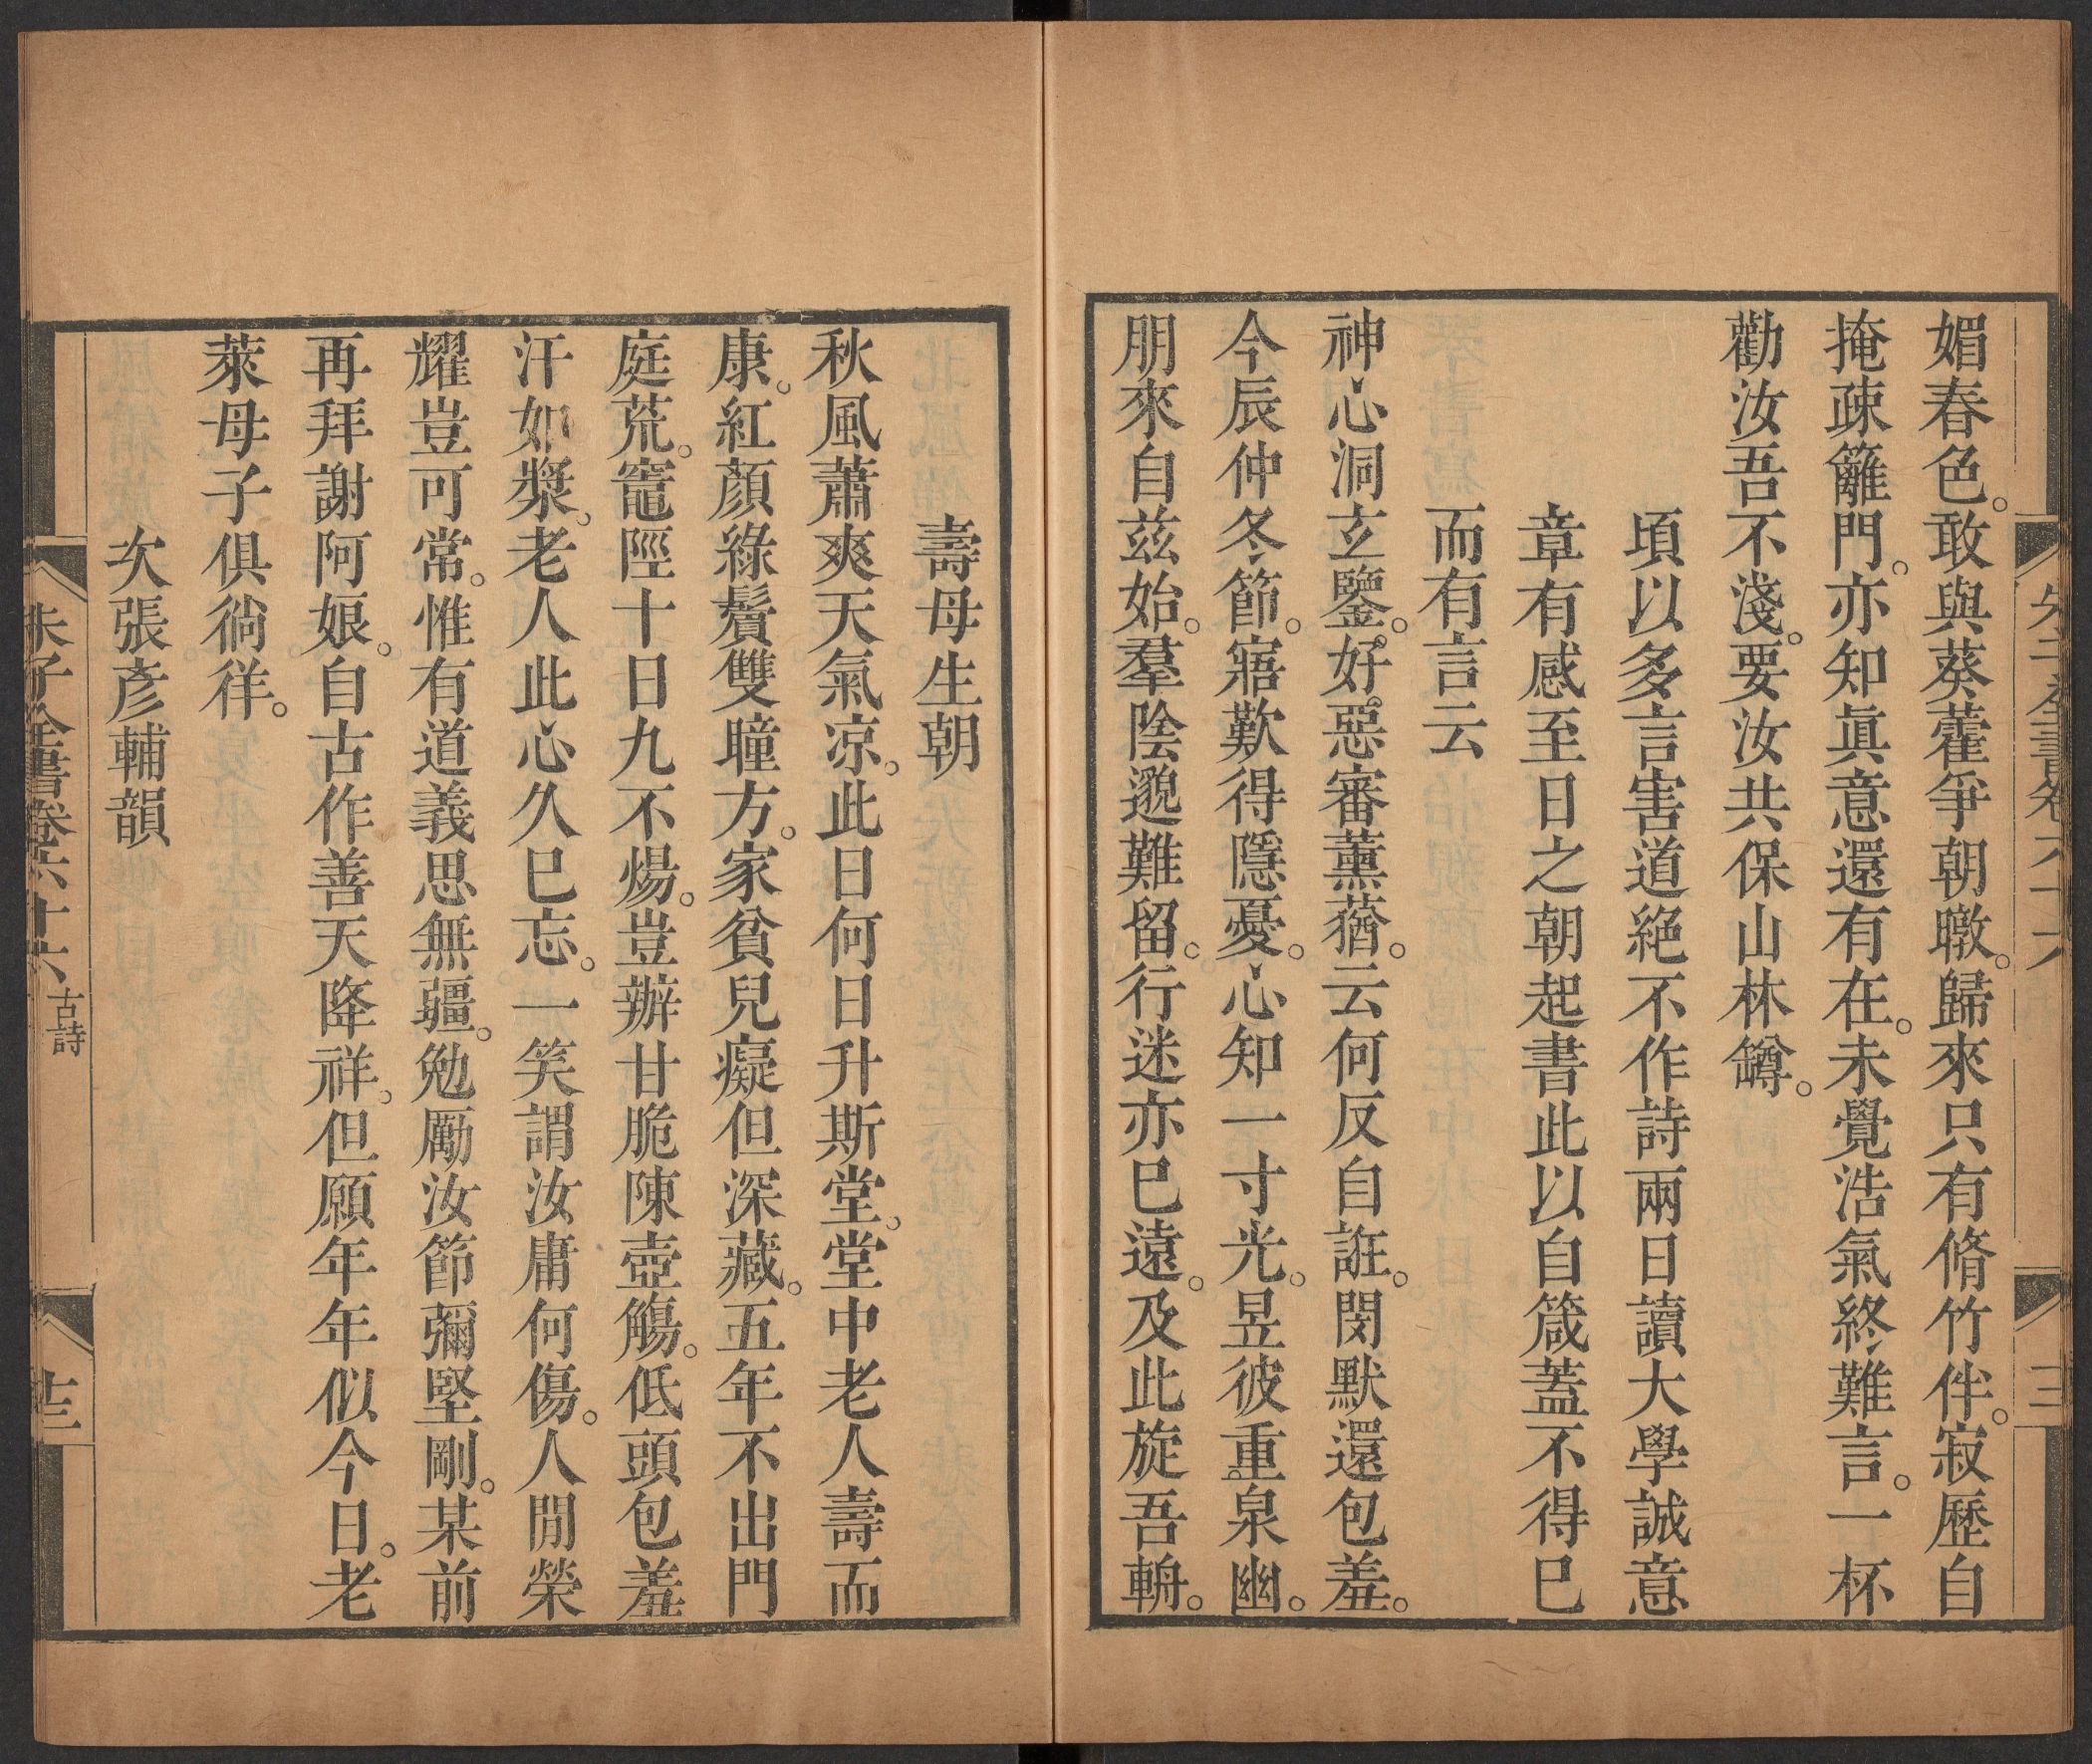 媚春色。敢與葵藿爭朝暾。歸來只有脩竹伴。寂歷自
掩疎籬門。亦知眞意還有在。未覺浩氣終難言。一杯
勸汝吾不淺。要汝共保山林罇。
頃以多言害道絶不作詩兩日讀大學誠意
章有感至日之朝起書此以自箴蓋不得已
而有言云
神心洞玄鑒。好惡審薰蕕。云何反自誑。閔默還包羞。
今辰仲冬節。寤歎得隱憂。心知一寸光。昱彼重泉幽。
朋來自茲始。羣陰邈難留。行迷亦已遠。及此旋吾輈。
壽母生朝
秋風蕭爽天氣凉。此日何日升斯堂。堂中老人壽而
康。紅顏綠鬢雙瞳方。家貧兒癡但深藏。五年不出門
庭荒。竈陘十日九不煬。豈辦甘脆陳壺觴。低頭包羞
汗如漿。老人此心久已忘。一笑謂汝庸何傷。人閒榮
耀豈可常。惟有道義思無疆。勉厲汝節彌堅剛。某前
再拜謝阿娘。自古作善天降祥。但願年年似今日。老
萊母子俱徜徉。
次張彥輔韻
朱子全書卷六十六 古詩
十三